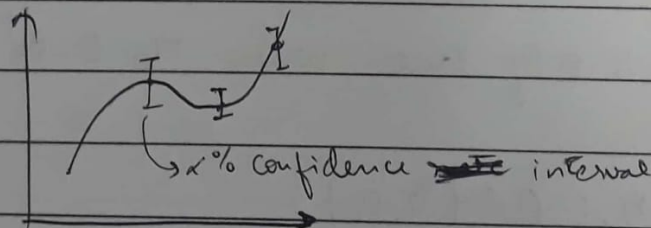 α% confidence interval